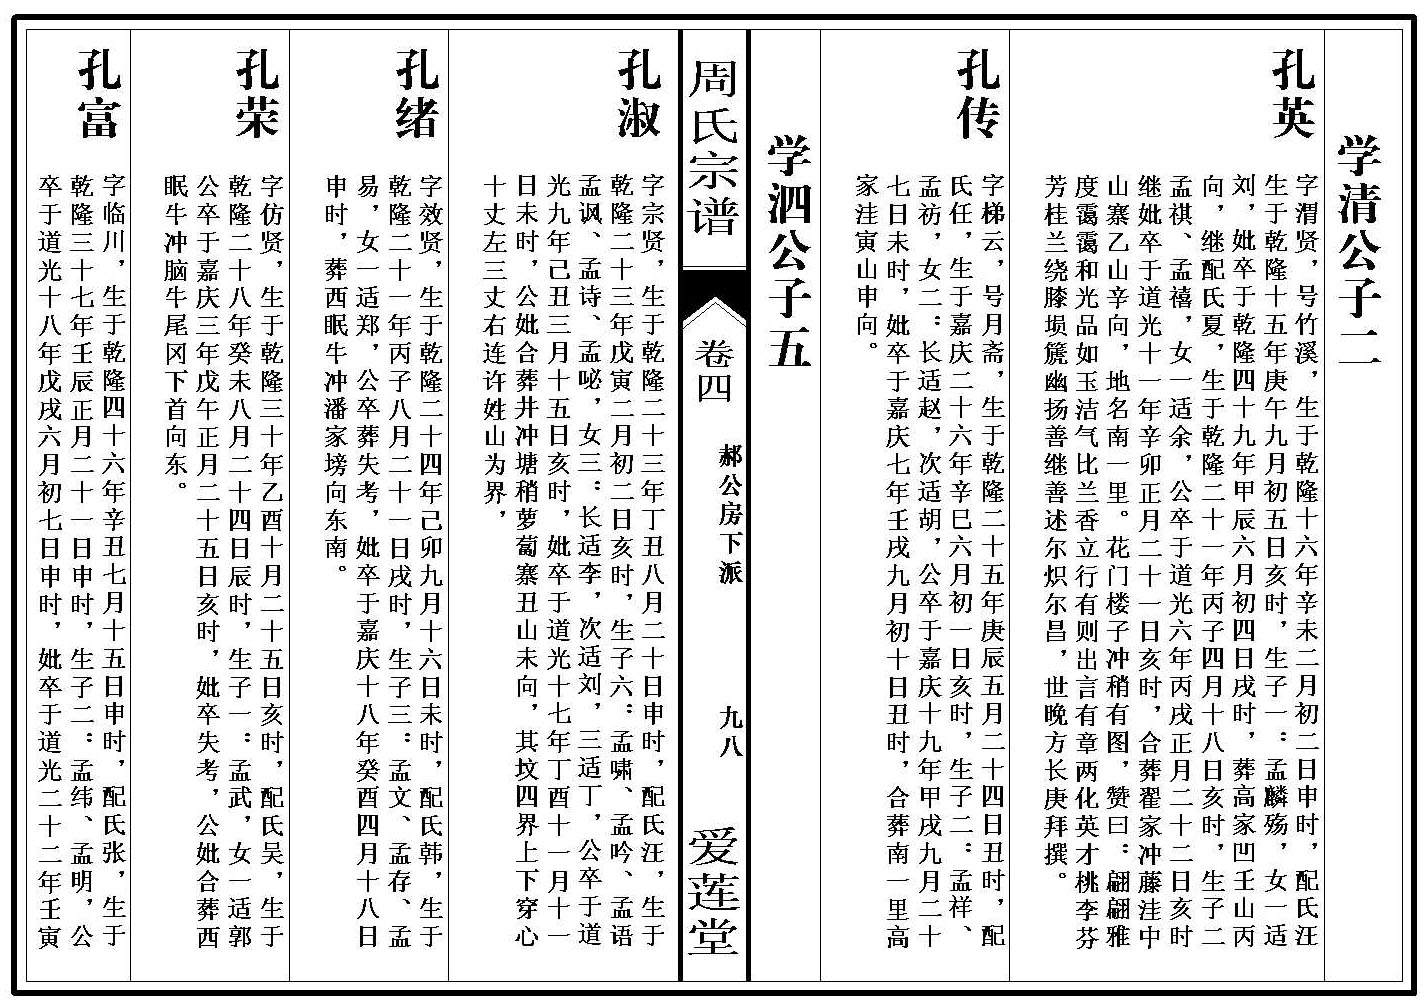 学清公子二
孔英
字渭贤，号竹溪，生于乾隆十六年辛未二月初二日申时，配氏汪
生于乾隆十五年庚午九月初五日亥时，生子一：孟麟殇，女一适
刘，妣卒于乾隆四十九年甲辰六月初四日戌时，葬高家凹壬山丙
向，继配氏夏，生于乾隆二十一年丙子四月十八日亥时，生子二
孟祺、孟禧，女一适余，公卒于道光六年丙戌正月二十二日亥时
继妣卒于道光十一年辛卯正月二十一日亥时，合葬翟家冲藤洼中
山寨乙山辛向，地名南一里。花门楼子冲稍有图，赞曰：翩翩雅
度霭霭和光品如玉洁气比兰香立行有则出言有章两化英才桃李芬
芳桂兰绕膝埙篪幽扬善继善述尔炽尔昌，世晚方长庚拜撰。
孔传
字梯云，号月斋，生于乾隆二十五年庚辰五月二十四日丑时，配
氏任，生于嘉庆二十六年辛巳六月初一日亥时，生子二：孟祥、
孟祊，女二：长适赵，次适胡，公卒于嘉庆十九年甲戌九月二十
七日未时，妣卒于嘉庆七年壬戌九月初十日丑时，合葬南一里高
家洼寅山申向。
学泗公子五
周氏宗谱
卷四
郝公房下派
九八
爱莲堂
孔淑
字宗贤，生于乾隆二十三年丁丑八月二十日申时，配氏汪，生于
乾隆二十三年戊寅二月初二日亥时，生子六：孟啸、孟吟、孟语
孟讽、孟诗、孟咇，女三：长适李，次适刘，三适丁，公卒于道
光九年己丑三月十五日亥时，妣卒于道光十七年丁酉十一月十一
日未时，公妣合葬井冲塘稍萝蔔寨丑山未向，其坟四界上下穿心
十丈左三丈右连许姓山为界，
孔绪
字效贤，生于乾隆二十四年己卯九月十六日未时，配氏韩，生于
乾隆二十一年丙子八月二十一日戌时，生子三：孟文、孟存、孟
易，女一适郑，公卒葬失考，妣卒于嘉庆十八年癸酉四月十八日
申时，葬西眠牛冲潘家塝向东南。
孔荣
字仿贤，生于乾隆三十年乙酉十月二十五日亥时，配氏吴，生于
乾隆二十八年癸未八月二十四日辰时，生子一：孟武，女一适郭
公卒于嘉庆三年戊午正月二十五日亥时，妣卒失考，公妣合葬西
眠牛冲脑牛尾冈下首向东。
孔富
字临川，生于乾隆四十六年辛丑七月十五日申时，配氏张，生于
乾隆三十七年壬辰正月二十一日申时，生子二：孟纬、孟明，公
卒于道光十八年戊戌六月初七日申时，妣卒于道光二十二年壬寅